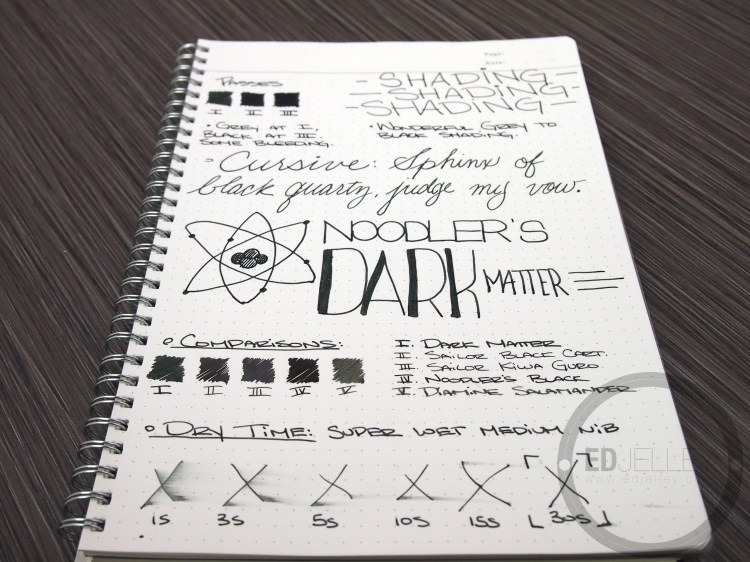 Page:
Date:
Passes
I II III
• Grey at I,
Black at III.
Some bleeding.
- SHADiNG -
- SHADiNG -
- SHADiNG -
• Wonderful Grey to
Black Shading.
Cursive: Sphinx of
black quartz, judge my vow.
NOODLER'S
DARK MATTER
Comparisons:
I II III IV V
I. Dark Matter
II. Sailor Black Cart.
III. Sailor Kiwa Guro
IV. Noodler's Black
V. Diamine Salamander
Dry Time: Super Wet Medium Nib
1s 3s 5s 10s 15s 30s
EDJELLEY
www.edjelley.c